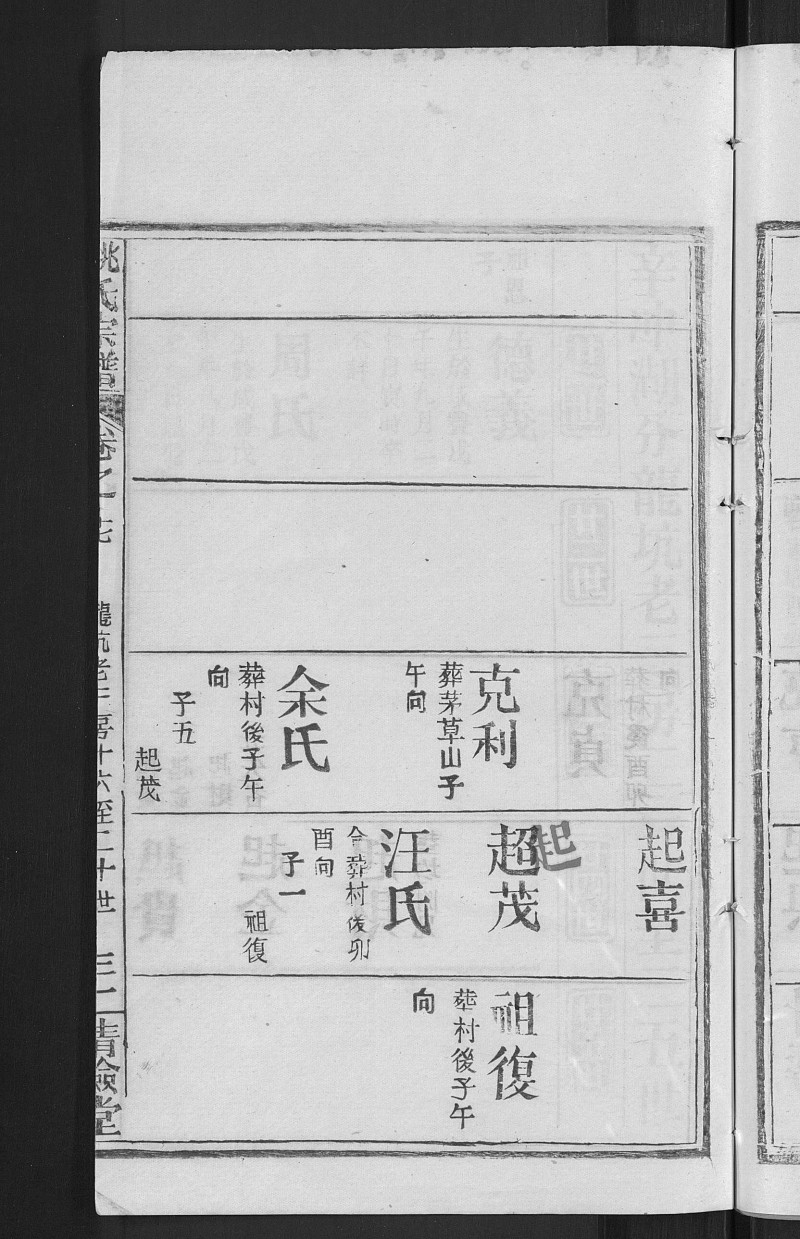 克利
葬茅草山子
午向
余氏
葬村後子午
向
子五
起茂
起喜
起
超茂
汪氏
合葬村後卯
酉向
子一
祖復
祖復
葬村後子午
向
姚氏宗譜
卷之十七
龍坑老二房十六至二十世
三一
清儉堂